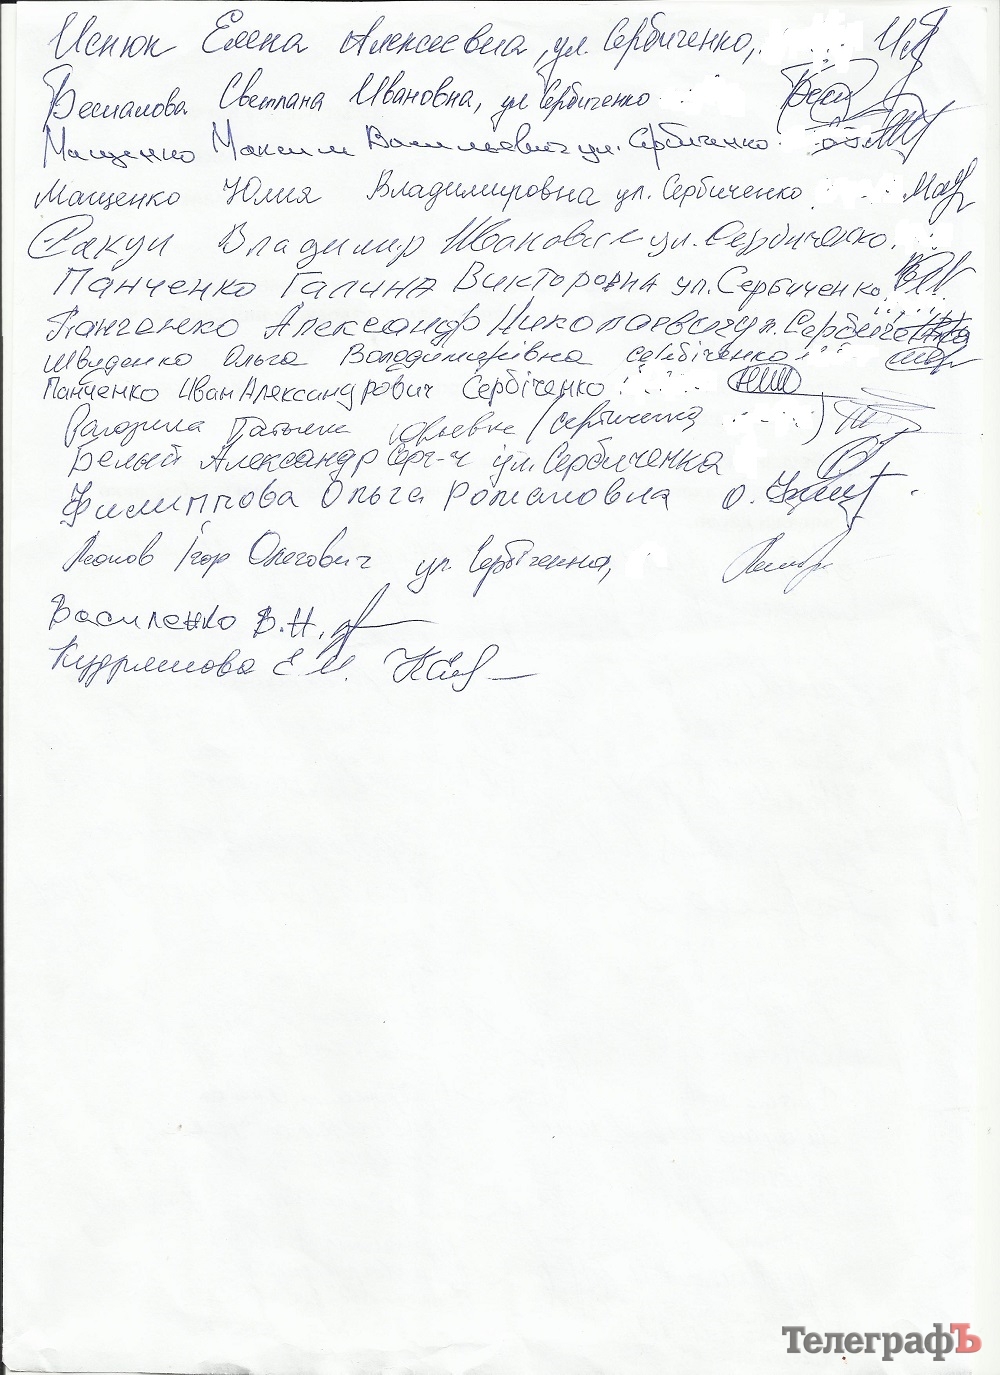 Елена Алексеевна, ул. Сербиченко,
Беспалова Светлана Ивановна, ул Сербиченко
Мащенко Максим Васильевич ул. Сербиченко
Мащенко Юлия Владимировна ул. Сербиченко
Сакун Владимир Иванович ул. Сербиченко,
Панченко Галина Викторовна ул. Сербиченко
Панченко Александр Николаевич ул. Сербиченко
Швиденко Ольга Володимирівна Сербіченко
Панченко Иван Александрович Сербіченко
Татьяна Юрьевна
Белый Александр ул. Сербиченка
Филиппова Ольга Романовна
Ігор Олегович ул.
Василенко В.Н.
Кудряшова Е
ТелеграфЪ